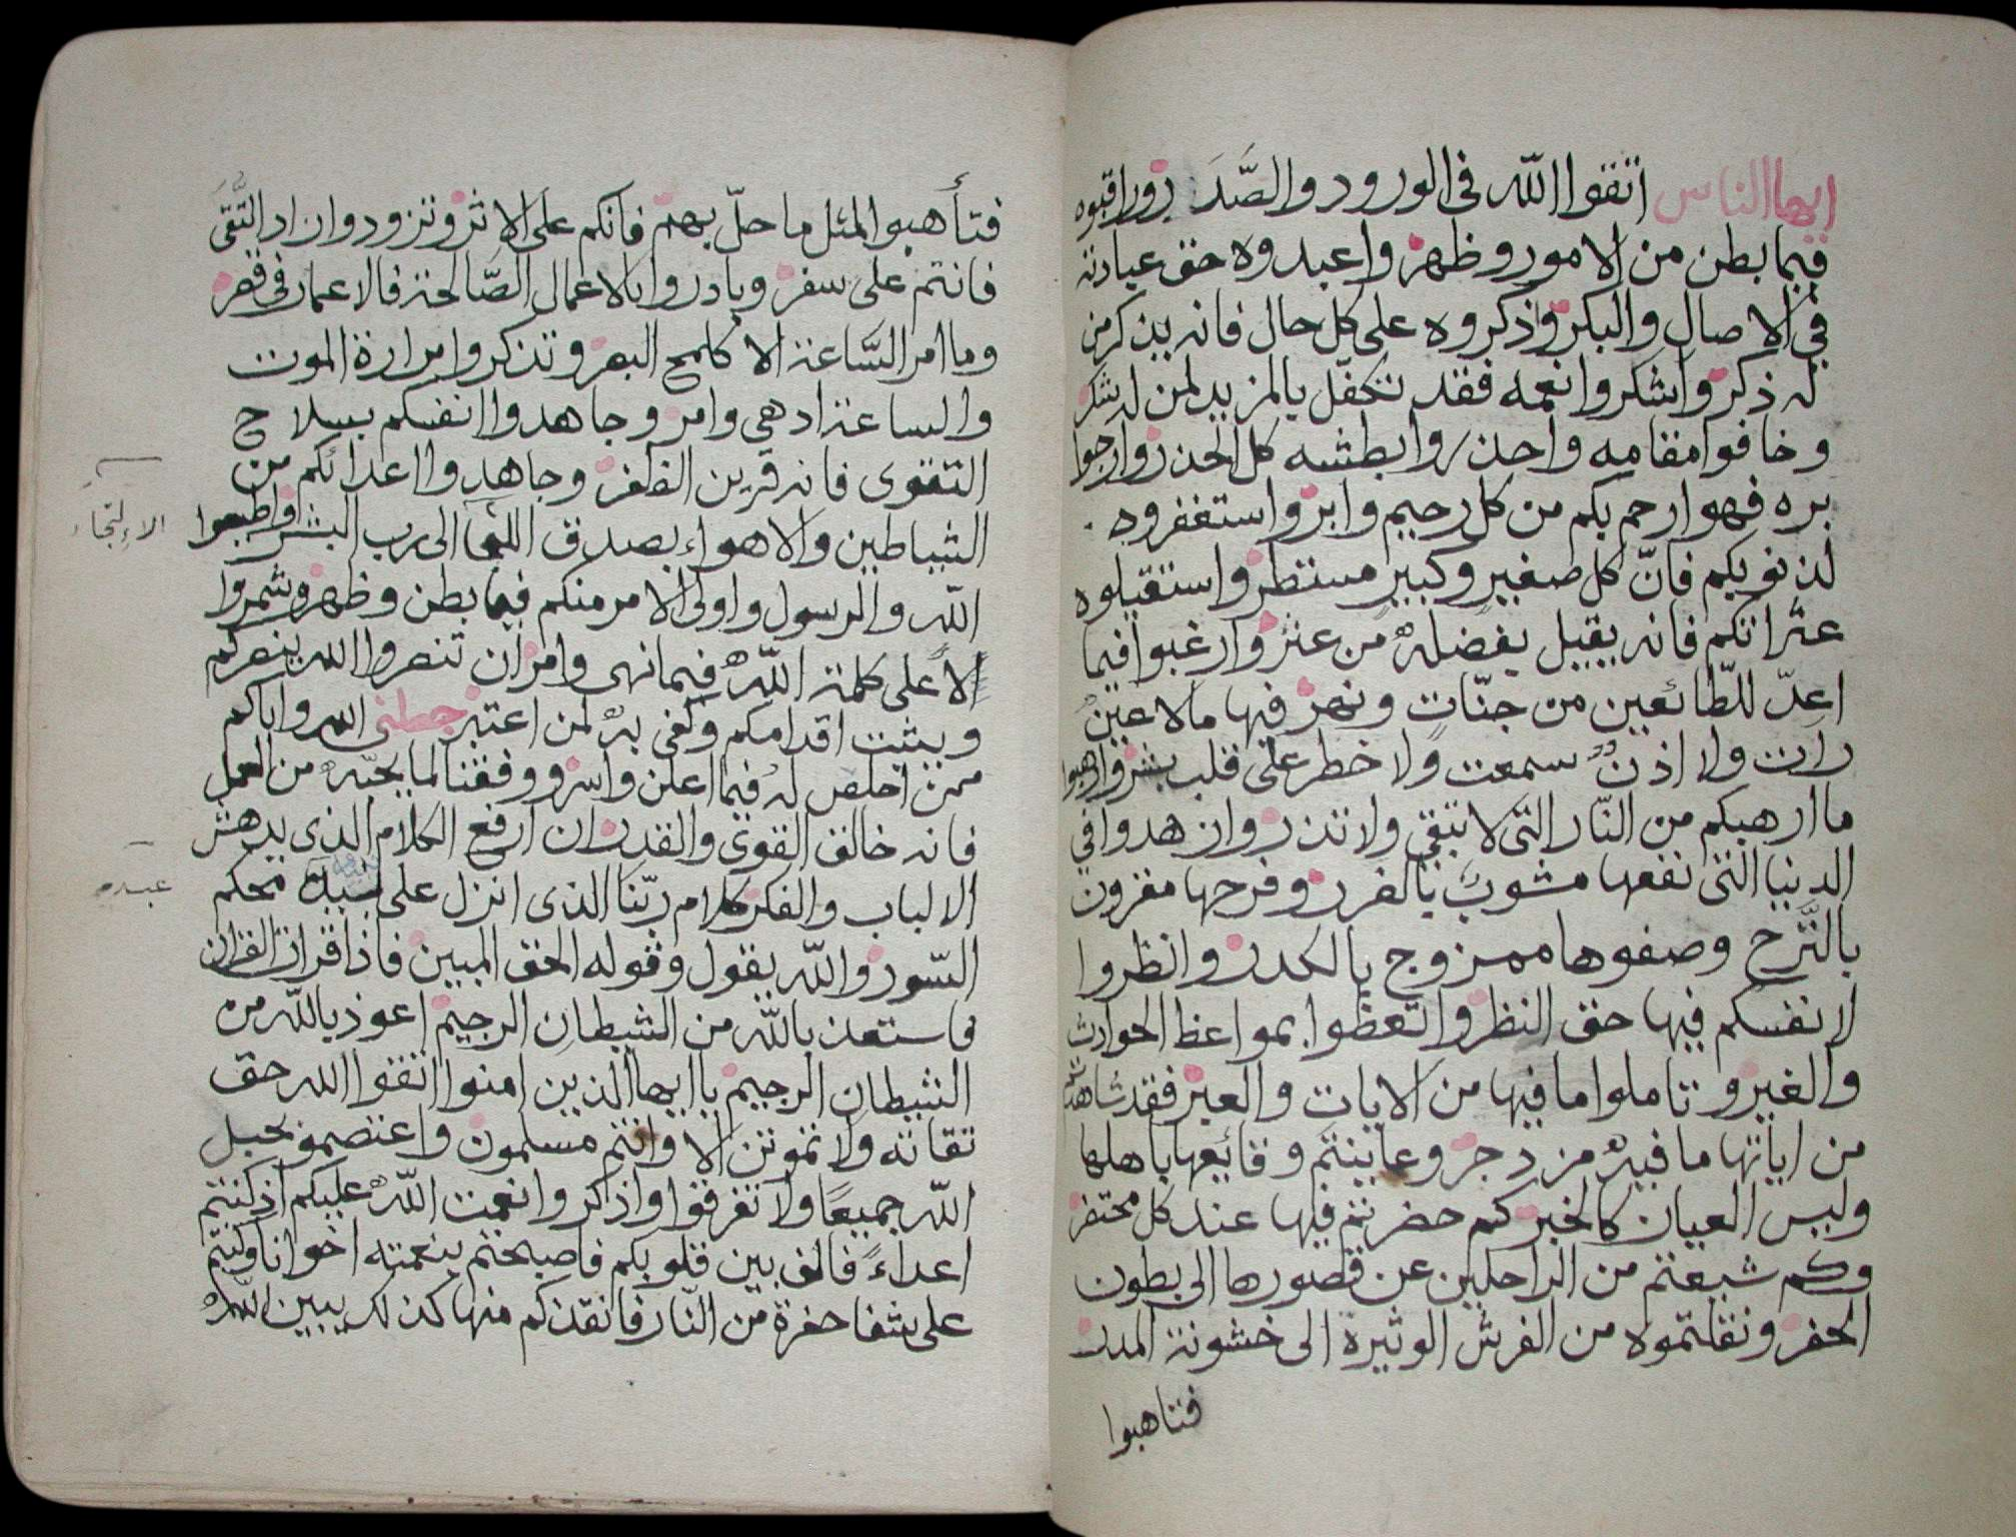 ايها الناس اتقوا الله فى الورود والصَّدَر وراقبوه
فيما بطن من الامور وظهر واعبدوه حق عبادته
فى الاصال والبكر واذكروه على كل حال فانه يذكر من
له ذكر واشكروا نعمه فقد تكفّل بالمزيد لمن له شكر
وخافوا مقامه واحذروا بطشه كل الحذر وارجوا
بره فهو ارحم بكم من كل رحيم وابر واستغفروه
لذنوبكم فانّ كل صغيرٍ وكبيرٍ مستطر واستقيلوه
عثراتكم فانه يقيل بفضله من عثر وارغبوا فيما
اعدّ للطّائعين من جنّاتٍ ونهر فيها مالا عينٌ
رات ولا اذنٌ سمعت ولا خطر على قلب بشر وارهبوا
ما ارهبكم من النّار التى لا تبقى ولا تذر وازهدوا فى
الدنيا التى نفعها مشوبٌ بالضرر وفرحها مقرون
بالتَّرح وصفوها ممزوج بالكدر وانظروا
لانفسكم فيها حق النظر واتعظوا بمواعظ الحوادث
والغير وتاملوا ما فيها من الايات والعبر فقد شاهدتم
من اياتها ما فيه مزدجر وعاينتم وقائعها باهلها
وليس العيان كالخبر كم حضرتم فيها عند كل محتضر
وكم شيعتم من الراحلين عن قصورها الى بطون
الحفر ونقلتموه من الفرش الوثيرة الى خشونة المدر
فتاهبوا
فتأهبوا لمثل ما حلّ بهم فانكم على الاثر وتزودوا زاد التّقى
فانتم على سفر وبادروا بالاعمال الصَّالحة فالاعمار فى قصر
وما امر السَّاعة الا كلمح البصر وتذكروا مرارة الموت
والساعة ادهى وامر وجاهدوا انفسكم بسلاح
التقوى فانه قرين الظفر وجاهدوا اعدائكم من
الشياطين والاهواء بصدق اللجا الى رب البشر واطيعوا
الالتجاء
الله والرسول واولى الامر منكم فيما بطن وظهر وشمروا
لاعلى كلمة الله فيما نهى وامر ان تنصروا الله ينصركم
ويثبت اقدامكم وكفى به لمن اعتبر جعلنى الله واياكم
ممن اخلص له فيما اعلن واسر ووفقنا لما يحبّه من العمل
فانه خالق القوى والقدر ان ارفع الكلام الذى يدهش
الالباب والفكر كلام ربّنا الذى انزل على محكم
عبده
السّور والله يقول وقوله الحق المبين فاذا قرات القران
فاستعذ بالله من الشيطان الرجيم اعوذ بالله من
الشيطان الرجيم يا ايها الذين امنوا اتقوا الله حق
تقاته ولا تموتن الا وانتم مسلمون واعتصمو بحبل
الله جميعًا ولا تفرقوا واذكروا نعمت الله عليكم اذ كنتم
اعداءً فالف بين قلوبكم فاصبحتم بنعمته اخوانا وكنتم
على شفا حفرة من النّار فانقذكم منها كذلك يبين الله